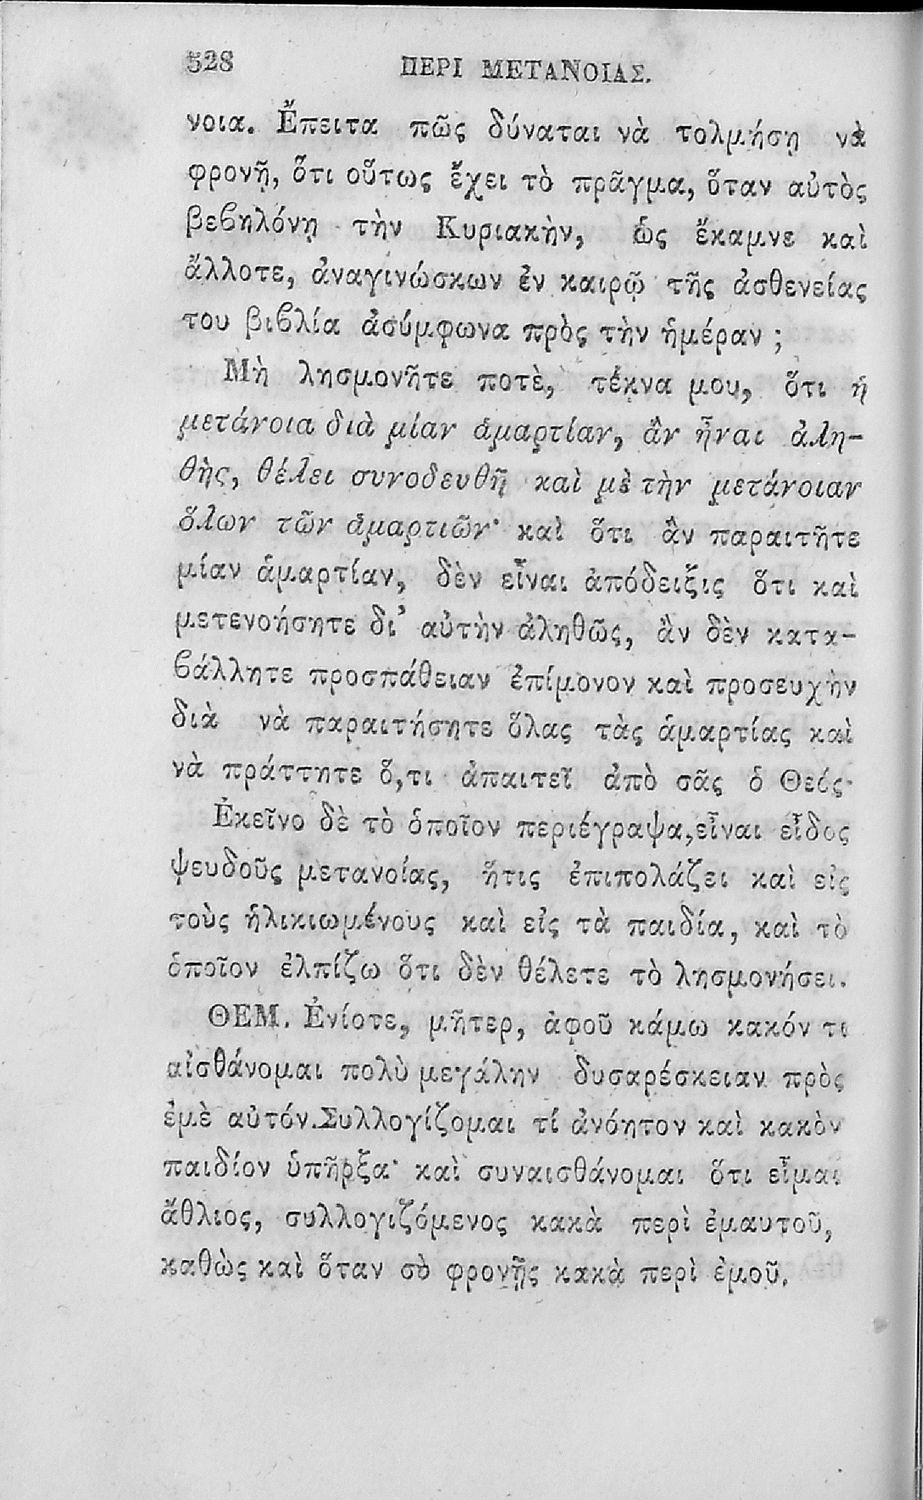 528 ΠΕΡΙ ΜΕΤΑΝΟΙΑΣ.
νοια. Ἔπειτα πῶς δύναται νὰ τολμήσῃ νὰ
φρονῇ, ὅτι οὕτως ἔχει τὸ πρᾶγμα, ὅταν αὐτὸς
βεϐηλόνῃ τὴν Κυριακὴν, ὡς ἔκαμνε καὶ
ἄλλοτε, ἀναγινώσκων ἐν καιρῷ τῆς ἀσθενείας
του βιϐλία ἀσύμφωνα πρὸς τὴν ἡμέραν ;
Μὴ λησμονῆτε ποτὲ, τέκνα μου, ὅτι ἡ
μετάνοια διὰ μίαν ἁμαρτίαν, ἂν ἦναι ἀλη-
θὴς, θέλει συνοδευθῆ καὶ μὲ τὴν μετάνοιαν
ὅλων τῶν ἁμαρτιῶν· καὶ ὅτι ἂν παραιτῆτε
μίαν ἁμαρτίαν, δὲν εἶναι ἀπόδειξις ὅτι καὶ
μετενοήσητε δι’ αὐτὴν ἀληθῶς, ἂν δὲν κατα-
ϐάλλητε προσπάθειαν ἐπίμονον καὶ προσευχὴν
διὰ νὰ παραιτήσητε ὅλας τὰς ἁμαρτίας καὶ
νὰ πράττητε ὅ,τι ἀπαιτεῖ ἀπὸ σᾶς ὁ Θεός·
Ἐκεῖνο δὲ τὸ ὁποῖον περιέγραψα,εἶναι εἶδος
ψευδοῦς μετανοίας, ἥτις ἐπιπολάζει καὶ εἰς
τοὺς ἡλικιωμένους καὶ εἰς τὰ παιδία, καὶ τὸ
ὁποῖον ἐλπίζω ὅτι δὲν θέλετε τὸ λησμονήσει.
ΘΕΜ. Ἐνίοτε, μῆτερ, ἀφοῦ κάμω κακόν τι
αἰσθάνομαι πολὺ μεγάλην δυσαρέσκειαν πρὸς
ἐμὲ αὐτόν.Συλλογίζομαι τί ἀνόητον καὶ κακὸν
παιδίον ὑπῆρξα· καὶ συναισθάνομαι ὅτι εἶμαι
ἄθλιος, συλλογιζόμενος κακὰ περὶ ἐμαυτοῦ,
καθὼς καὶ ὅταν σὺ φρονῇς κακὰ περὶ ἐμοῦ.